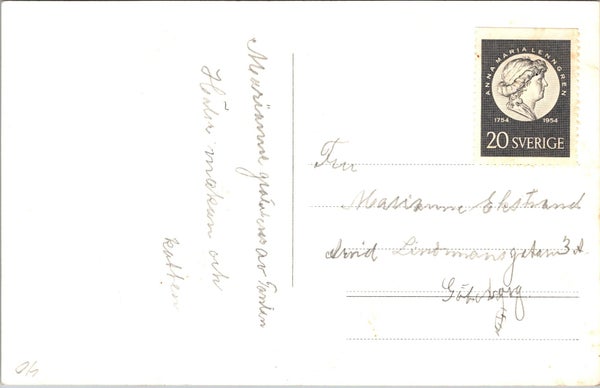 Marianne gratuleras av Tanten
Hälsn makan och
katten
ANNA MARIA LENNGREN
1754 1954
20 SVERIGE
Fru
Marianne Ekstrand
Arvid Lindmansgatan 3 A
Göteborg